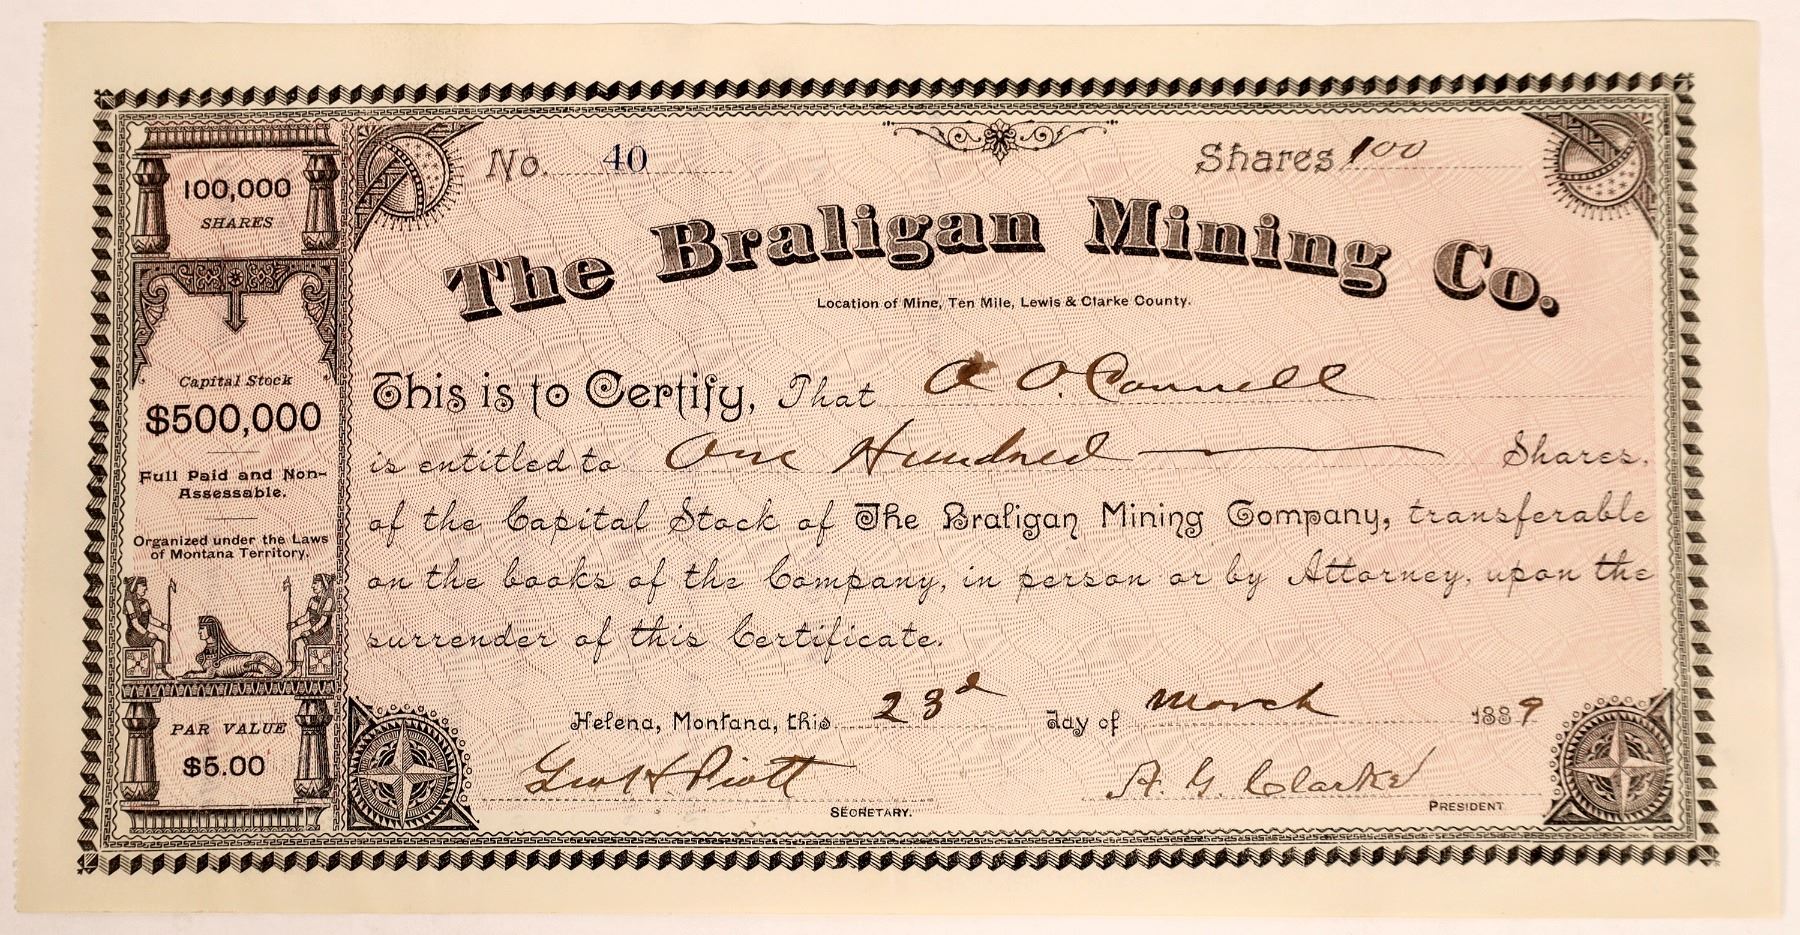 No. 40
Shares 100
The Braligan Mining Co.
Location of Mine, Ten Mile, Lewis & Clarke County.
This is to Certify, That A O.Connell
is entitled to One Hundred Shares,
of the Capital Stock of The Braligan Mining Company, transferable
on the books of the Company, in person or by Attorney, upon the
surrender of this Certificate.
Helena, Montana, this 23d day of March 1889
Geo H. Piatt
SECRETARY.
A. G. Clarke
PRESIDENT
100,000
SHARES
Capital Stock
$500,000
Full Paid and Non-
Assessable.
Organized under the Laws
of Montana Territory.
PAR VALUE
$5.00